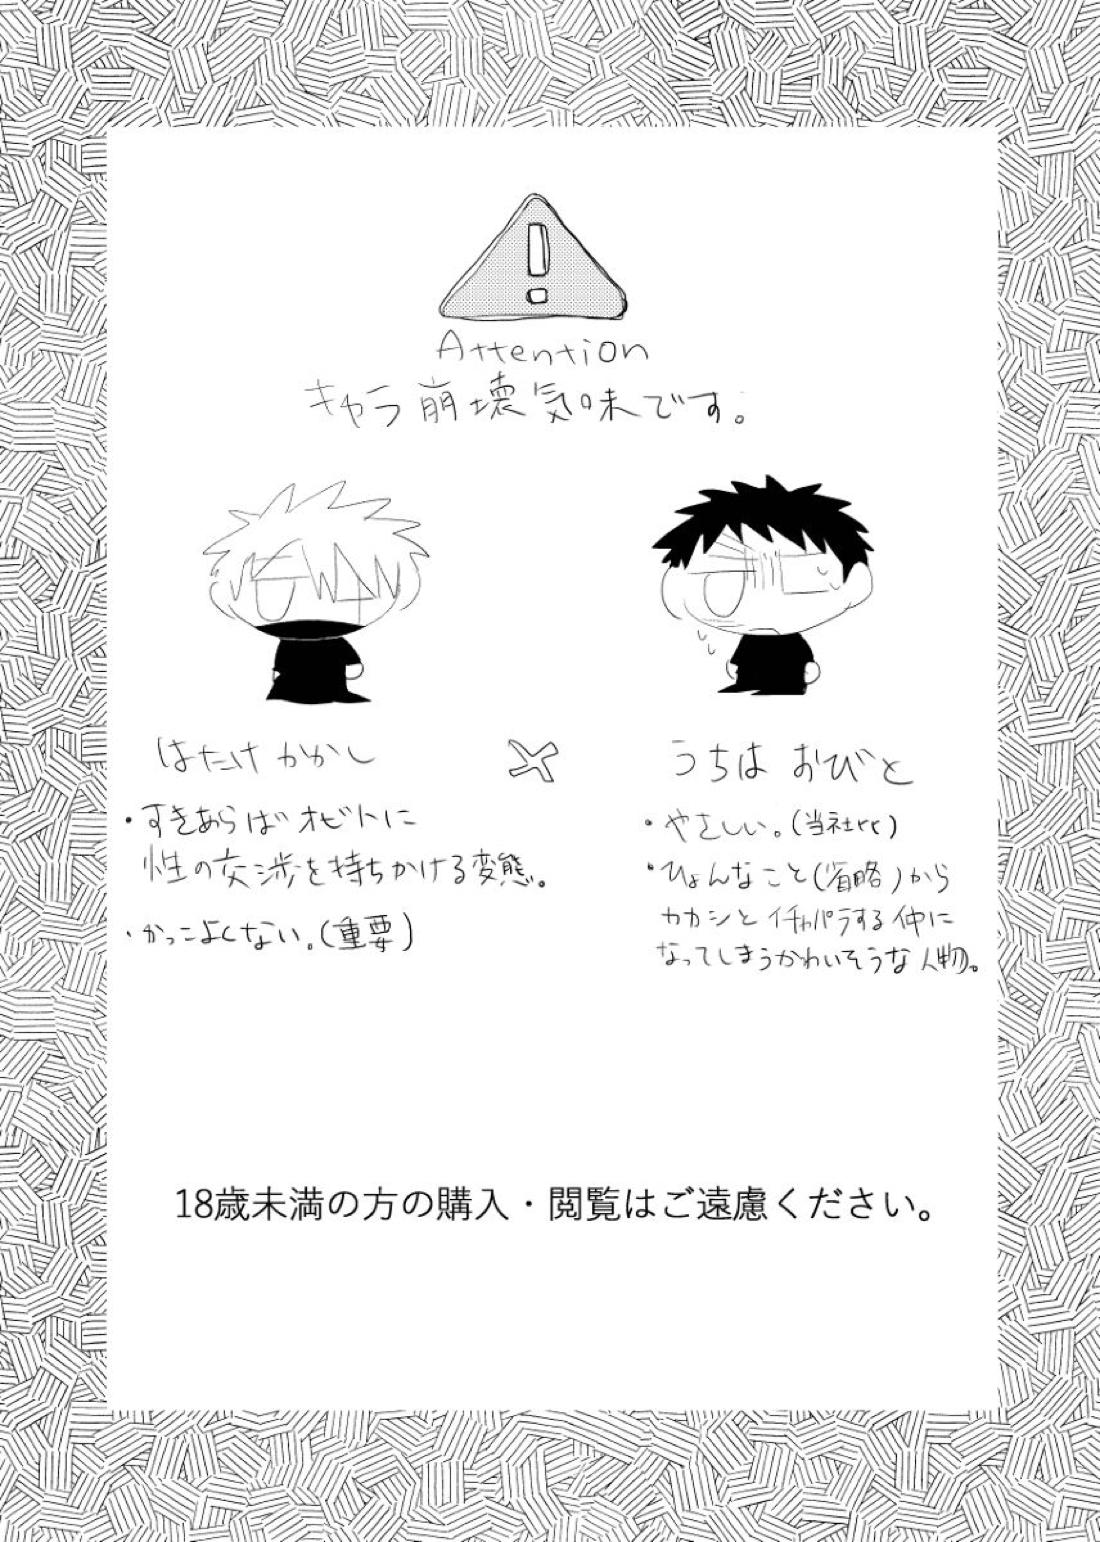 Attention
キャラ崩壊気味です。
はたけ かかし
×
うちは おびと
・すきあらば オビトに
性の交渉を持ちかける変態。
・かっこよくない。(重要)
・やさしい。(当社比)
・ひょんなこと(省略)から
カカシとイチャパラする仲に
なってしまうかわいそうな人物。
18歳未満の方の購入・閲覧はご遠慮ください。